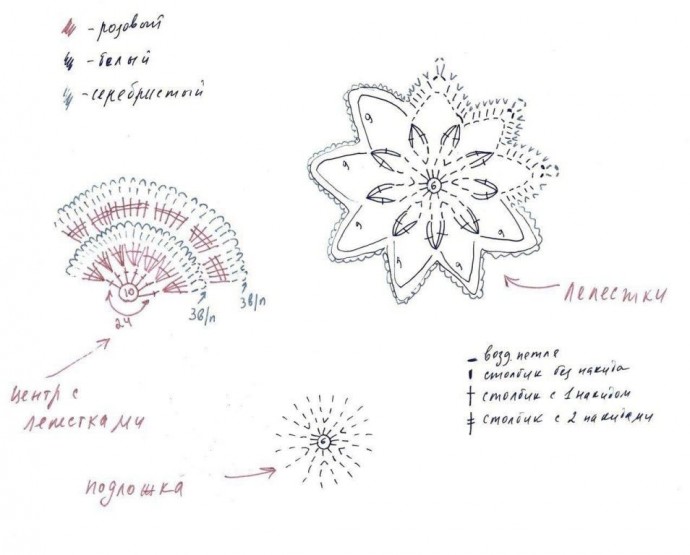 - розовый
- белый
- серебристый
9
9
9
9
9
9
6
10
24
3в/п
3в/п
лепестки
- возд. петля
столбик без накида
столбик с 1 накидом
столбик с 2 накидами
центр с
лепестками
6
подложка